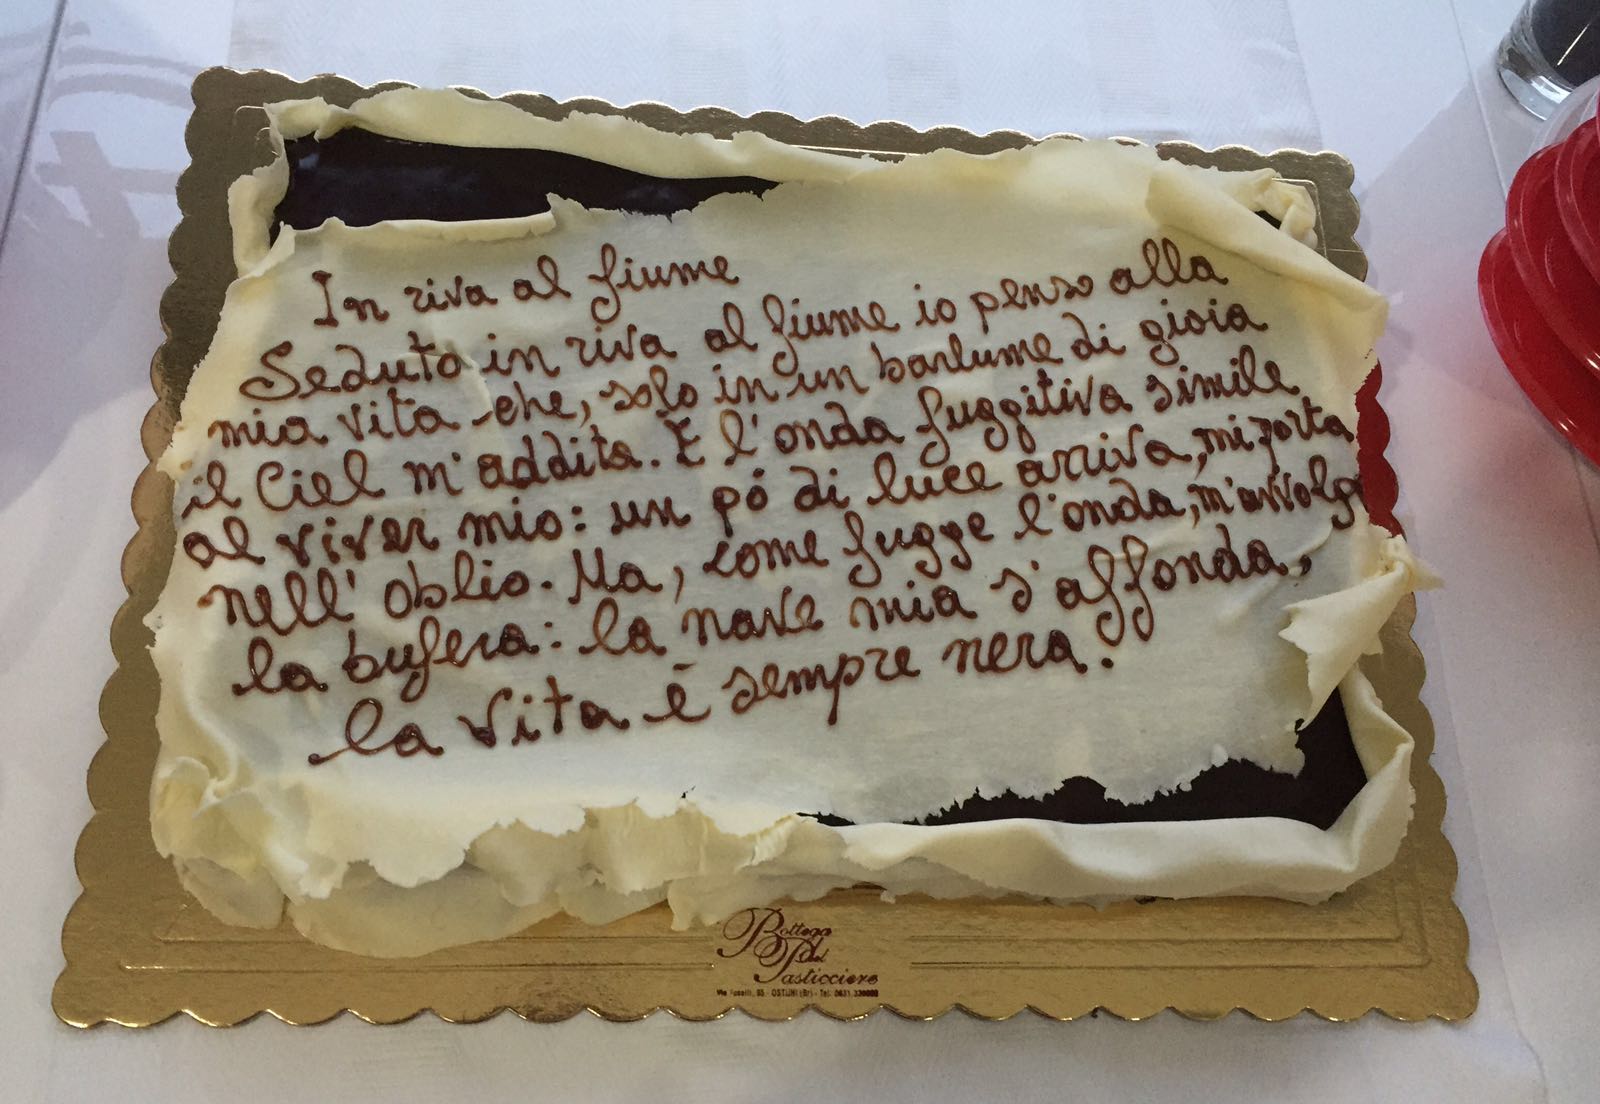 In riva al fiume
Seduto in riva al fiume io penso alla
mia vita che, solo in un barlume di gioia
il Ciel m'addita. È l'onda fuggitiva simile
al viver mio: un pó di luce arriva, mi porta
nell'oblio. Ma, come fugge l'onda, m'avvolge
la bufera: la nave mia s'affonda,
la vita è sempre nera.
Bottega
del
Pasticciere
OSTUNI (Br) - Tel.